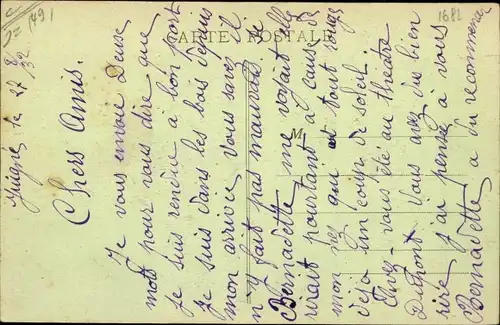 1491
1682
CARTE POSTALE
M
Juigné le 27 8/32
Chers Amis.
Je vous envoie Deux
mots pour vous dire que
je suis rendue à bon port
Je suis dans les bois depuis
mon arrivée Vous savez il
n'y fait pas mauvais. Si
Bernadette me voyait elle
rirait pourtant à cause de
mon nez qui est tout rouge
déjà un coup de soleil.
vous été au théâtre
Dumont Vous avez du bien
rire j'ai pensé à vous
Bernadette a du recommencer